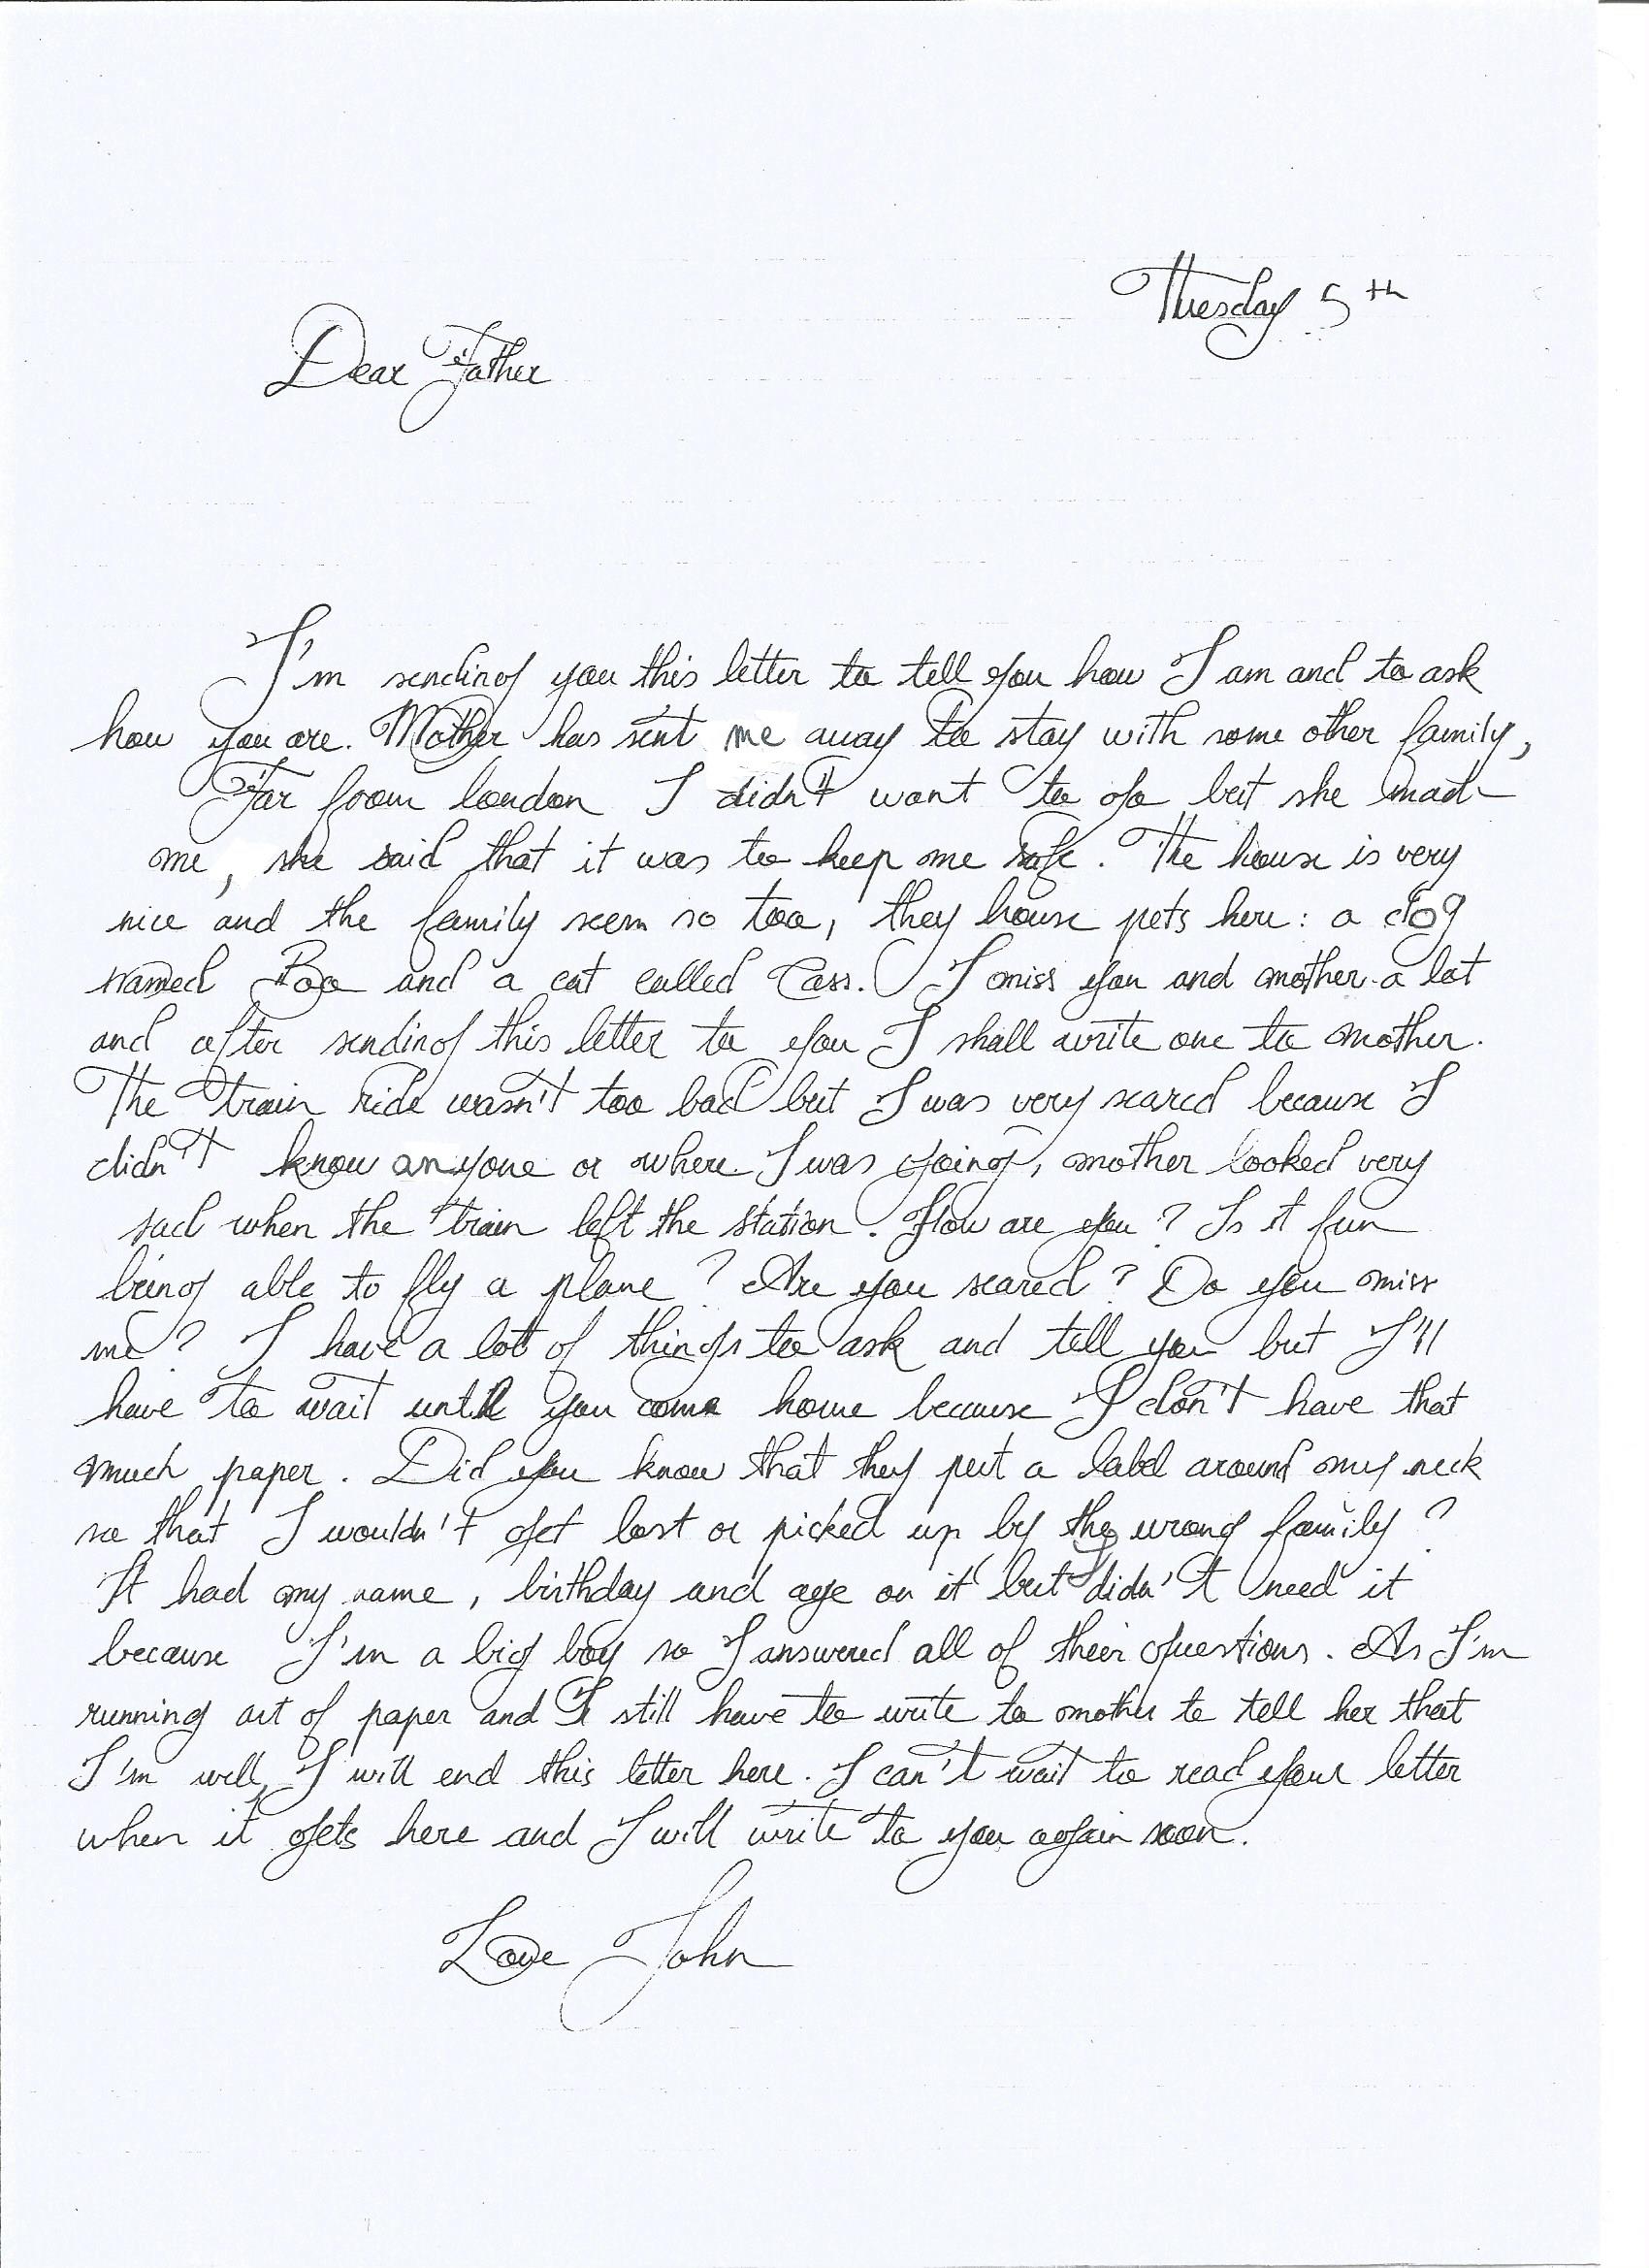 Thuesday 5th
Dear Father
I'm sending you this letter to tell you how I am and to ask
how you are. Mother has sent me away to stay with some other family,
Far from london I didn't want to go but she made
me, she said that it was to keep me safe. The house is very
nice and the family seem so too, they house pets here: a dog
named Bogo and a cat called Cass. I miss you and mother a lot
and after sending this letter to you I shall write one to mother.
The train ride wasn't too bad but I was very scared because I
didn't know anyone or where I was going, mother looked very
sad when the train left the station. How are you? Is it fun
being able to fly a plane? Are you scared? Do you miss
me? I have a lot of things to ask and tell you but I'll
have to wait until you come home because I don't have that
much paper. Did you know that they put a label around my neck
so that I wouldn't get lost or picked up by the wrong family?
It had my name, birthday and age on it but I didn't need it
because I'm a big boy so I answered all of their questions. As I'm
running out of paper and I still have to write to mother to tell her that
I'm well, I will end this letter here. I can't wait to read your letter
when it gets here and I will write to you again soon.
Love John